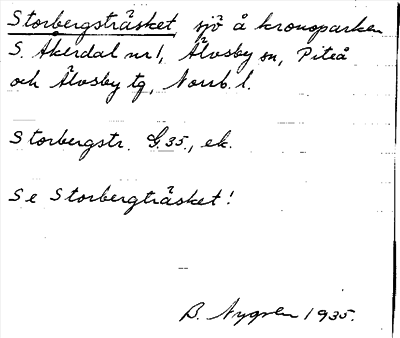 Storbergsträsket, sjö å kronoparken
S. Åkerdal nr 1, Älvsby sn, Piteå
och Älvsby tg, Norrb. l.
Storbergstr. G. 35., ek.
Se Storbergträsket!
B. Nygren 1935.